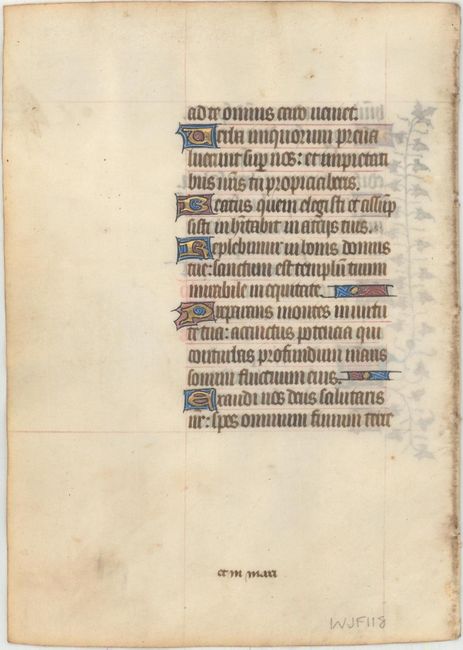 ad te omnis caro veniet.
Verba iniquorum preva
luerunt super nos: et impietati
bus nr̄is tu propiciaberis.
Beatus quem elegisti et assūp
sisti inhītabit in atrijs tuis.
Replebimur in bonis domus
tue: sanctum est templū tuum
mirabile in equitate.
Preparans montes in virtu
te tua: accinctus potencia qui
conturbas profundum maris
sonum fluctuum eius.
Exaudi nos deus salutaris
nr̄: spes omnium finium terre
et in mari
WJF118